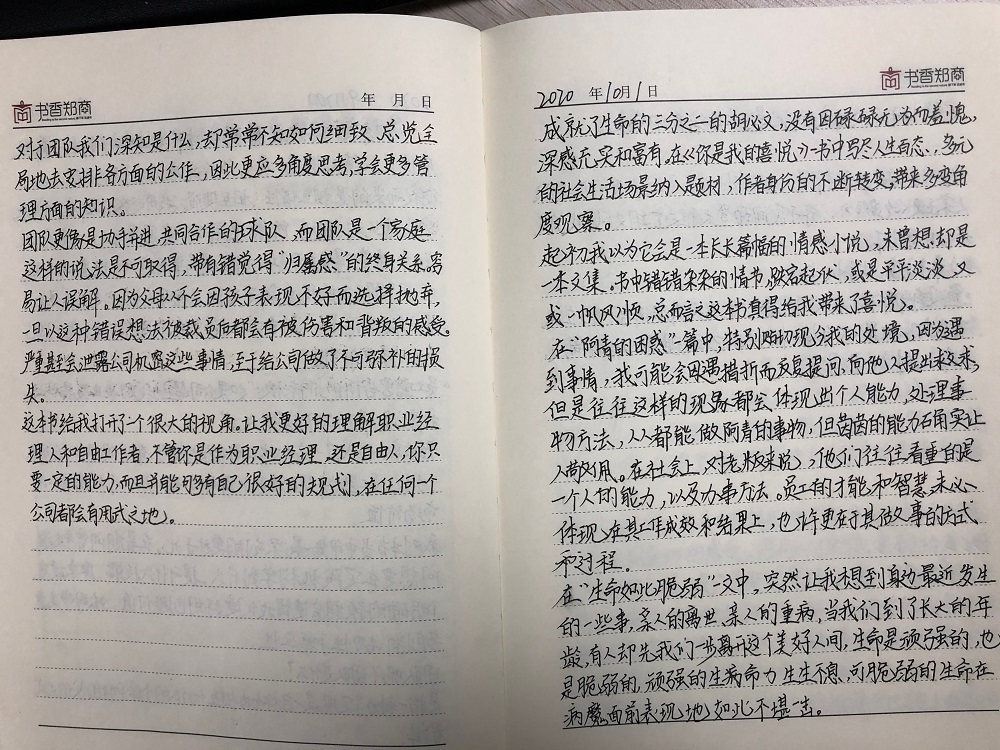 书香郑商
年 月 日
对于团队我们深知是什么,却常常不知如何细致、总览全
局地去安排各方面的工作,因此更应多角度思考,学会更多管
理方面的知识。
团队更像是协手并进 共同合作的球队,而团队是一个家庭
这样的说法是不可取得,带有错觉得“归属感”的终身关系,容
易让人误解。因为父母从不会因孩子表现不好而选择抛弃,
一旦以这种错误想法被裁员后都会有被伤害和背叛的感受。
严重甚至会泄露公司机密这些事情,至于给公司做了不可弥补的损
失。
这本书给我打开了个很大的视角。让我更好的理解职业经
理人和自由工作者,不管你是作为职业经理,还是自由人,你只
要一定的能力,而且并能够有自己很好的规划,在任何一个
公司都会有用武之地。
书香郑商
2020 年10月1日
成就了生命的三分之一的胡心文,没有因碌碌无为而羞愧,
深感充实和富有。在《你是我的喜悦》一书中写尽人生百态、多元
的社会生活场景纳入题材,作者身份的不断转变,带来多变角
度观察。
起初我以为它会是一本长长篇幅的情感小说,未曾想却是
一本文集。书中错错杂杂的情节,跌宕起伏,或是平平淡淡,又
或一帆风顺,总而言之这本书真得给我带来了喜悦。
在“阿青的困惑”一篇中,特别贴切现今我的处境,因为遇
到事情,我可能会因遇措折而反复提问,向他人提出求救,
但是往往这样的现象都会体现出个人能力,处理事
物方法,人人都能做阿青的事物,但茵茵的能力石角实让
人敬佩。在社会上,对老板来说,他们往往看重的是
一个人的能力,以及办事方法。员工的才能和智慧,未必
体现在其工作成效和结果上,也许更在于其做事的方式
和过程。
在“生命如此脆弱”一文中,突然让我想到身边最近发生
的一些事,亲人的离世,亲人的重病,当我们到了长大的年
龄,有人却先我们一步离开这个美好人间,生命是顽强的,也
是脆弱的,顽强的生病命力生生不息,可脆弱的生命在
病魔面前表现地如此不堪一击。